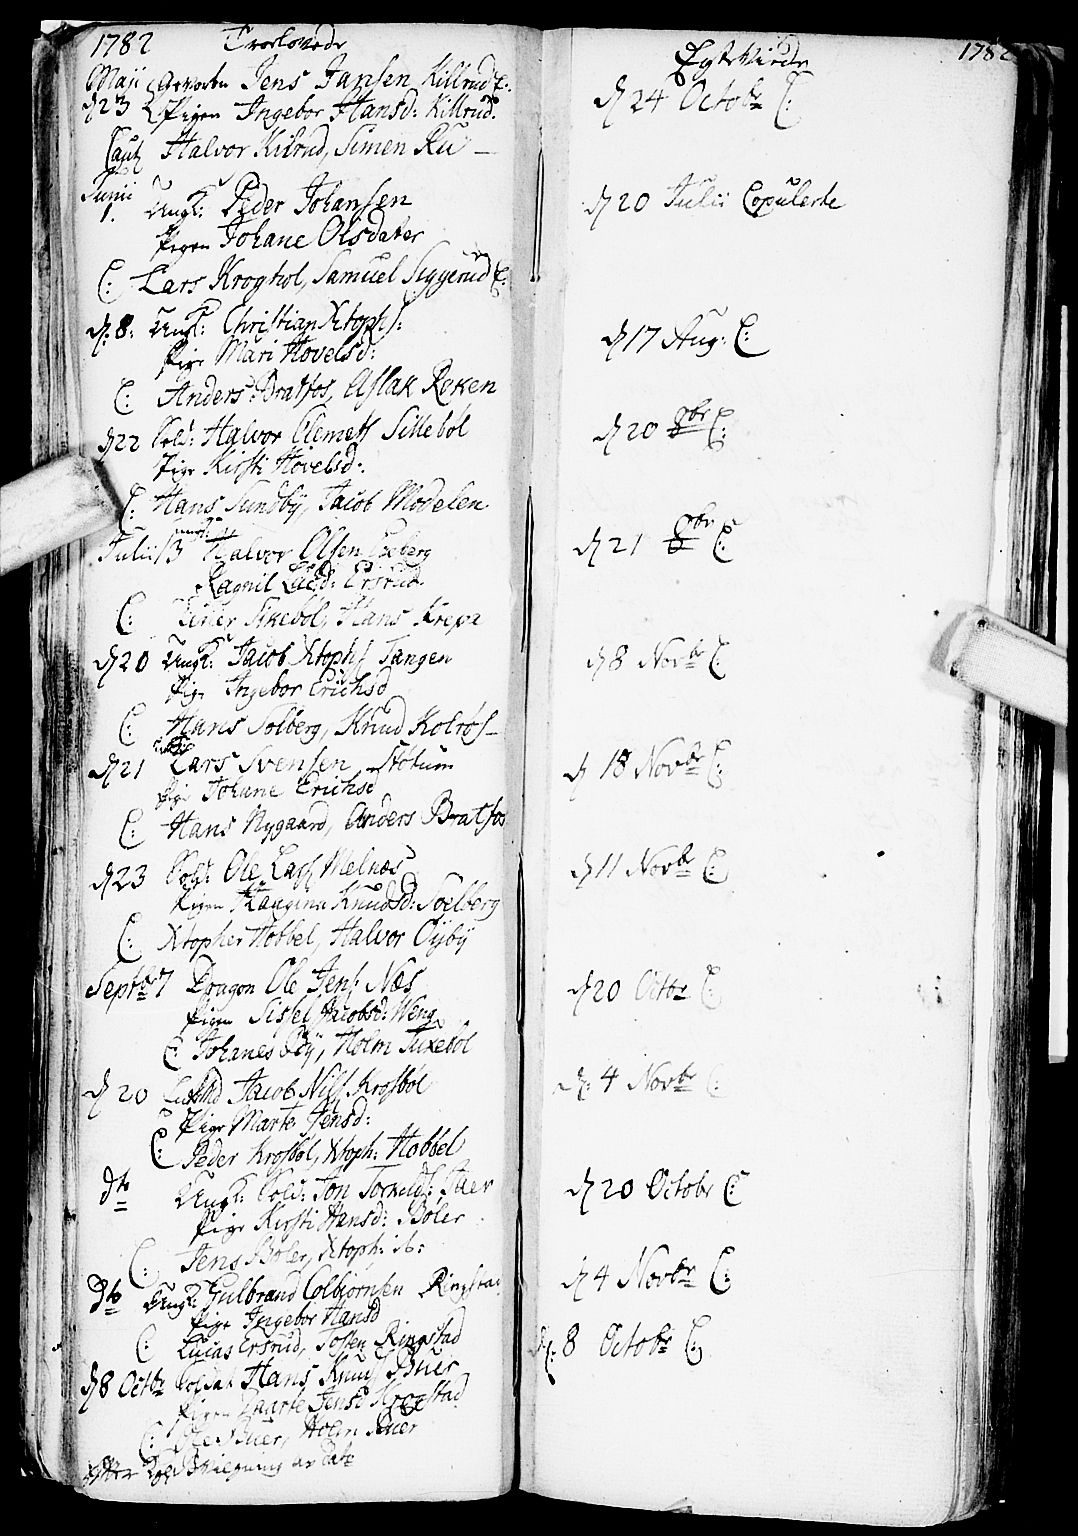 1782 Troelovede
Maji Jens Jansen Killrud C:
d 23 Pigen Ingebor Hansd: Killrud.
Caut Halvor Killrud, Simen Ru —
Junii
1. Ungk: Peder Johansen
Pigen Johane Olsdater
C: Lars Kroghol, Samuel Siggerud C:
d. 8: Ungk: Christian Xtophs:
Pige Mari Hovelsd:
C: Anders Bratfos, Aslak Roken
d 22 Sold: Halvor Clemets Sillebøl
Pige Kirsti Hovelsd:
C: Hans Sundby, Jacob Modelen
Julii 13 Halvor Olsen Exeberg
Ragnil Ersrud
C: Sikebøl, Hans Krepa
d 20 Ungk: Jacob Xtophs Tangen
Pige Ingebor Erichsd
C: Hans Solberg, Knud Kolrøs—
d 21 Lars Svensen Støtum
Pige Johane Erichsd
C: Hans Nygaard, Anders Bratfos
d 23 Sold: Ole Lars Melnæs
Pigen Knudsd: Soelberg
C: Xtopher Hobbel, Halvor Oÿbÿ
Septbr 7 Dragon Ole Jens: Næs
Pigen Sissel Jacobsd: Weng
C: Johanes Bÿ, Holm Tuxebøl
d 20 Jacob Nils Krosbøl
Pige Marte Jensd:
C: Peder Krosbøl, Xtoph: Hobbel
dto Ungk: Sold: Jon
Pige Kirsti Hansd: Bøler
C: Jens Bøler, Xtoph: ib:
dto Ungk: Gulbrand Colbiornsen Ringstad
Pige Ingebor Hansd
C: Lucas Ersrud, Tosten Ringstad
d 8 Octbr Soldat Hans Knuds Buer
Pigen Marte Jensd Krogstad
C: Ole Buer, Holm Buer
efter Kgl Bevilgning av Dato
Egteviede 1782
d 24 Octobr C:
d 20 Julii Copulerte
d 17 Aug: C:
d 20 8br C:
d 21 8br C:
d 8 Novbr C:
d 18 Novbr C:
d 11 Novbr C:
d 20 Octbr C:
d: 4 Novbr C:
d 20 Octobr C:
d 4 Novbr C:
d: 8 Octobr C: